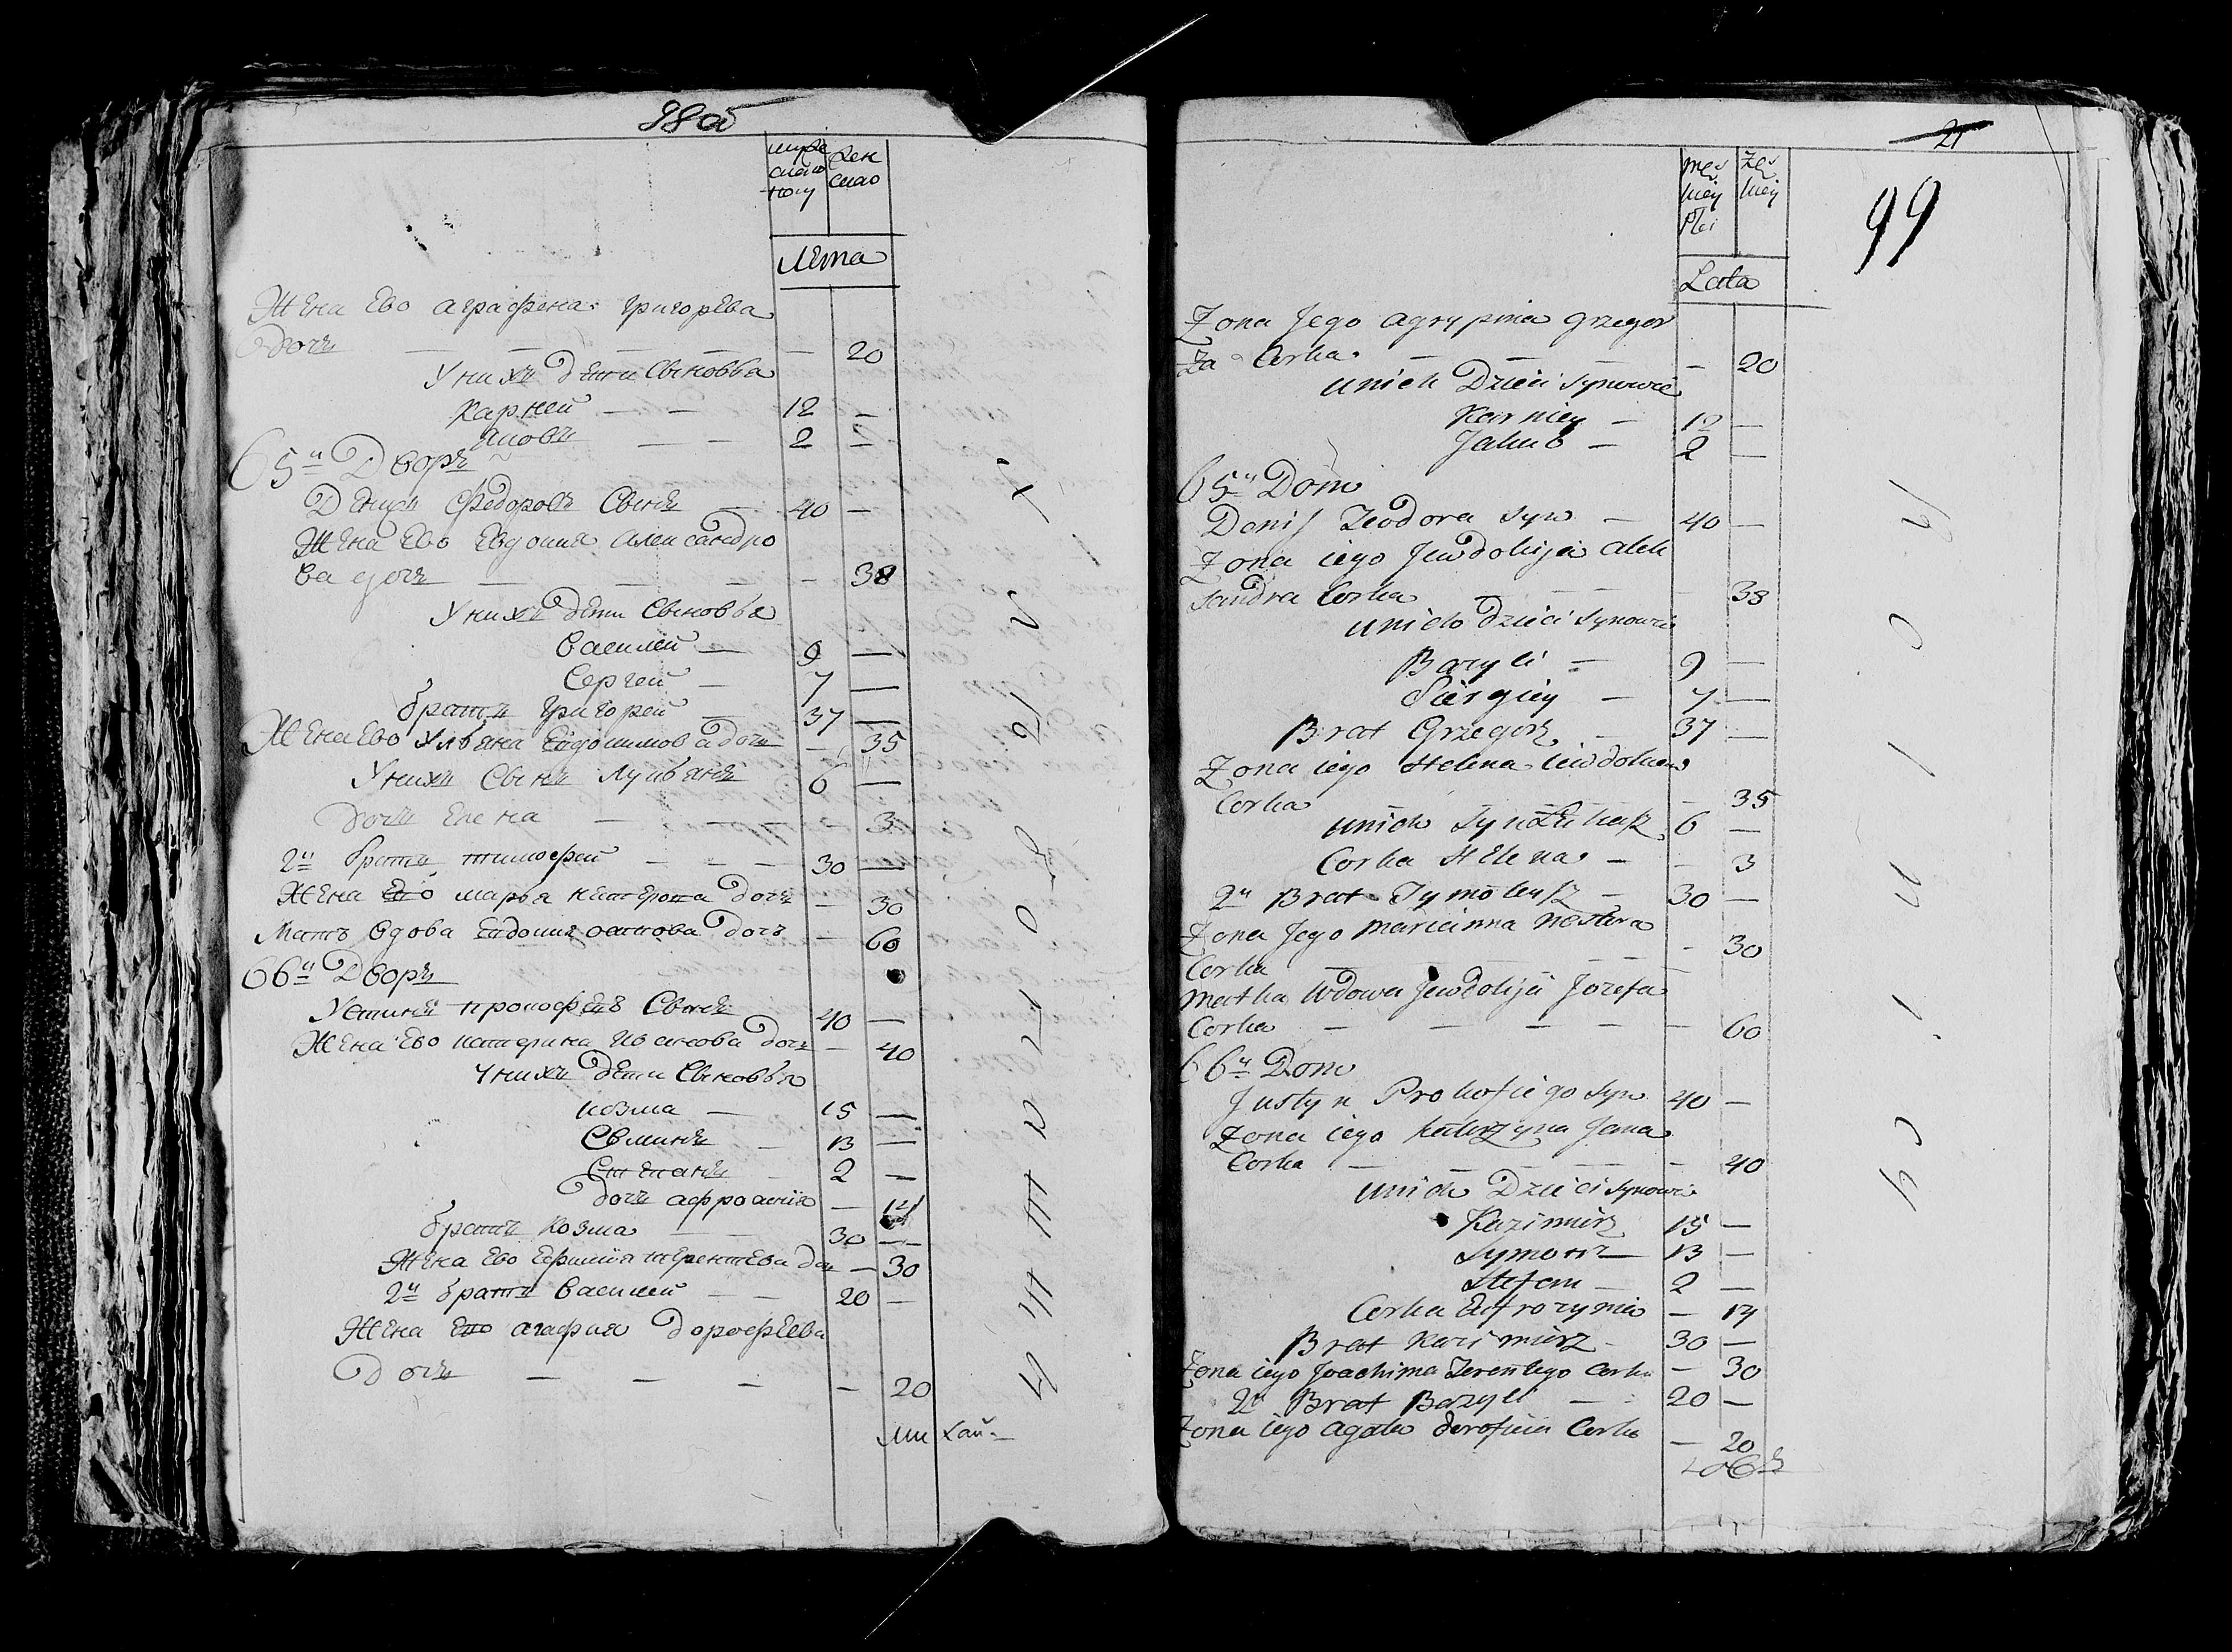 98 об
муже
скаго
полу
жен
скаго
Лѣта
Жена Ево аграфена григорева
дочь — — — — — 20
У нихъ дети Сыновья
Карней — — 12 —
Яковъ — — 2 —
65й Дворъ
Денисъ Федоровъ Сынъ — 40 —
Жена Ево Евдокия Александро
ва дочь — — — — 38
У нихъ дети Сыновья
Василей — 9 —
Сергей — 7 —
братъ григорей — 37 —
Жена Ево Ульяна дочь — 35
У нихъ Сынъ Лукьянъ 6 —
дочь Елена — — 3
2й братъ тимофей — — — 30 —
Жена Ево марья нестерова дочь — 30
Мать вдова Евдокия осипова дочь — 60
66й Дворъ
Устинъ прокофьевъ Сынъ 40 —
Жена Ево катерина Иванова дочь — 40
У нихъ дети Сыновья
козма — 15 —
Семинъ — 13 —
Степанъ — 2 —
дочь афросинія — 14
братъ Козма — — 30 —
Жена Ево Ефимія терентева доч — 30
2й братъ Василей — — 20 —
Жена Ево агафия дорофеева
дочь — — — — 20
21
99
męs
kiey
płci
żeń
skiey
Lata
Zona Jego agrypina grzegor
za Corka — — — — 20
unich Dzieci synowie
Karniey — 12 —
Jakub — 2 —
65y Dom
Denis Teodora syn — 40 —
Zona iego Jewdokija alek
sandra Corka — — — — 38
unich dzieci synowie
Bazyli — 9 —
Siergiey — 7 —
Brat Grzegorz — 37 —
Zona iego Helena
Corka — — — — 35
unich syn Łukasz 6 —
Corka Helena — — 3
2y Brat Tymoteusz — 30 —
Zona Jego marianna nestera
Corka — — — — 30
matka Wdowa Jewdokija Jozefa
Corka — — — — — 60
66y Dom
Justyn Prokofiego syn 40 —
Zona iego katarzyna Jana
Corka — — — — 40
unich Dzieci synowie
Kazimierz 15 —
Symon — 13 —
Stefan — 2 —
Corka Eufrozynia — 14
Brat Kazimierz — 30 —
Zona iego Joachima Terentego Corka — 30
2y Brat Bazyli — 20 —
Zona iego agata dorofieia Corka — 20